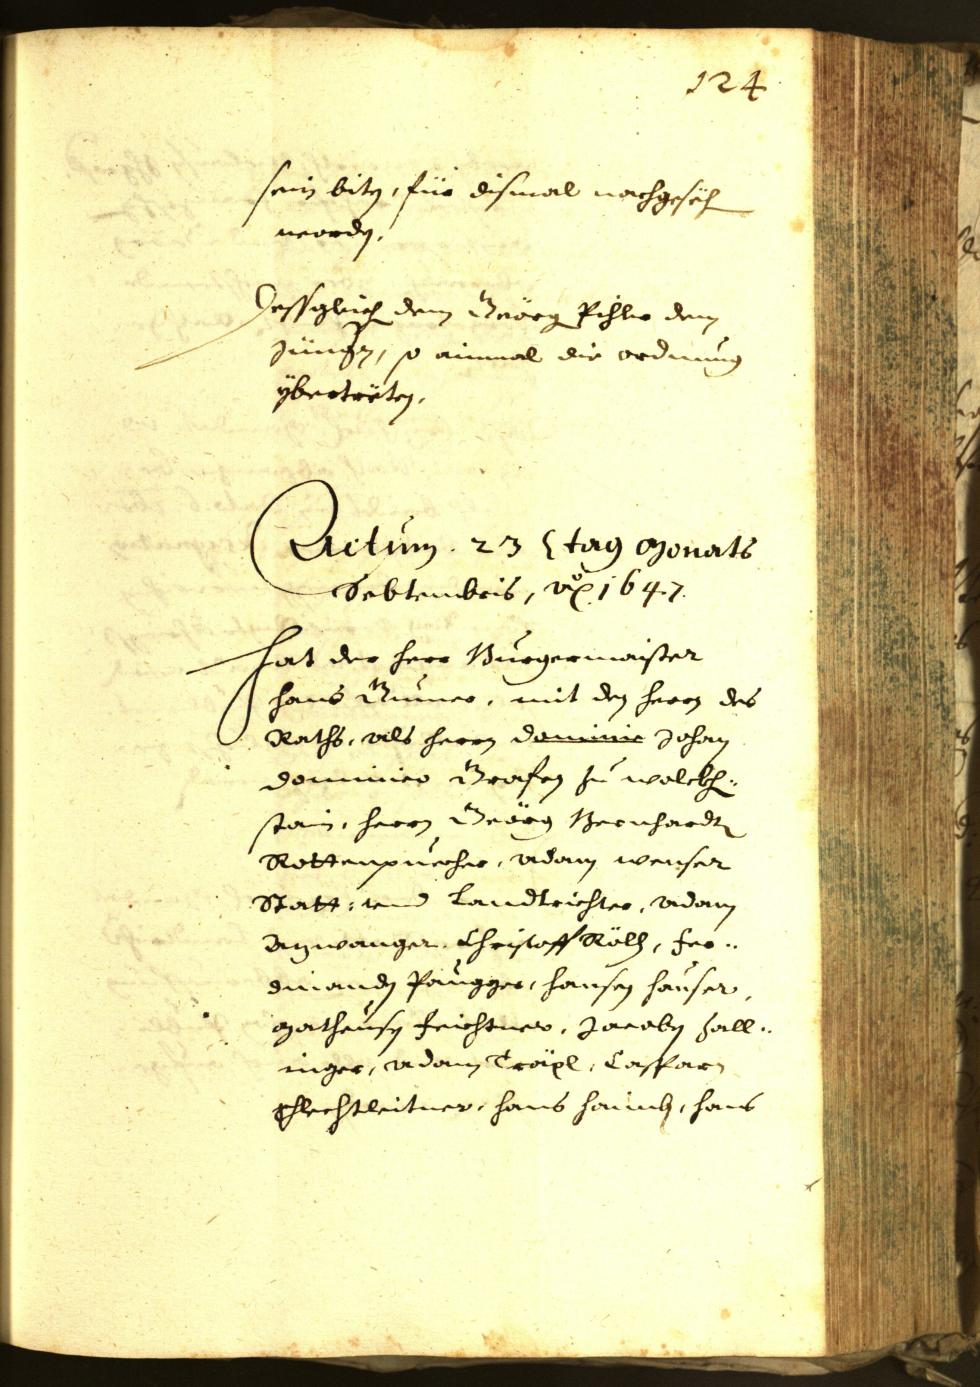 124
sein bitn, für dismal nachgesëh
wordn.
Dessgleich dem Geörg Pihler dem
Jüngern, so ainmal die ordnung
yberträten.
Actum 23 tag Monats
Sebtembris, Ao 1647
Hat der herr Burgermaister
hans Gumer, mit den herrn des
Raths, als herrn dominic Johan
dominico Grafen zu wolckh:
stain, herrn Geörg Bernhardt
Rottenpuecher, adam wenser
Statt: und Landtrichter, adam
Anwanger, Christoff Röll, Fer:
dinandn Paugger, hansen hauser,
Matheusn Feichtner, Jacobn Hall:
inger, adam Träpl, Casparn
Schlechtleitner, hans hainz, hans